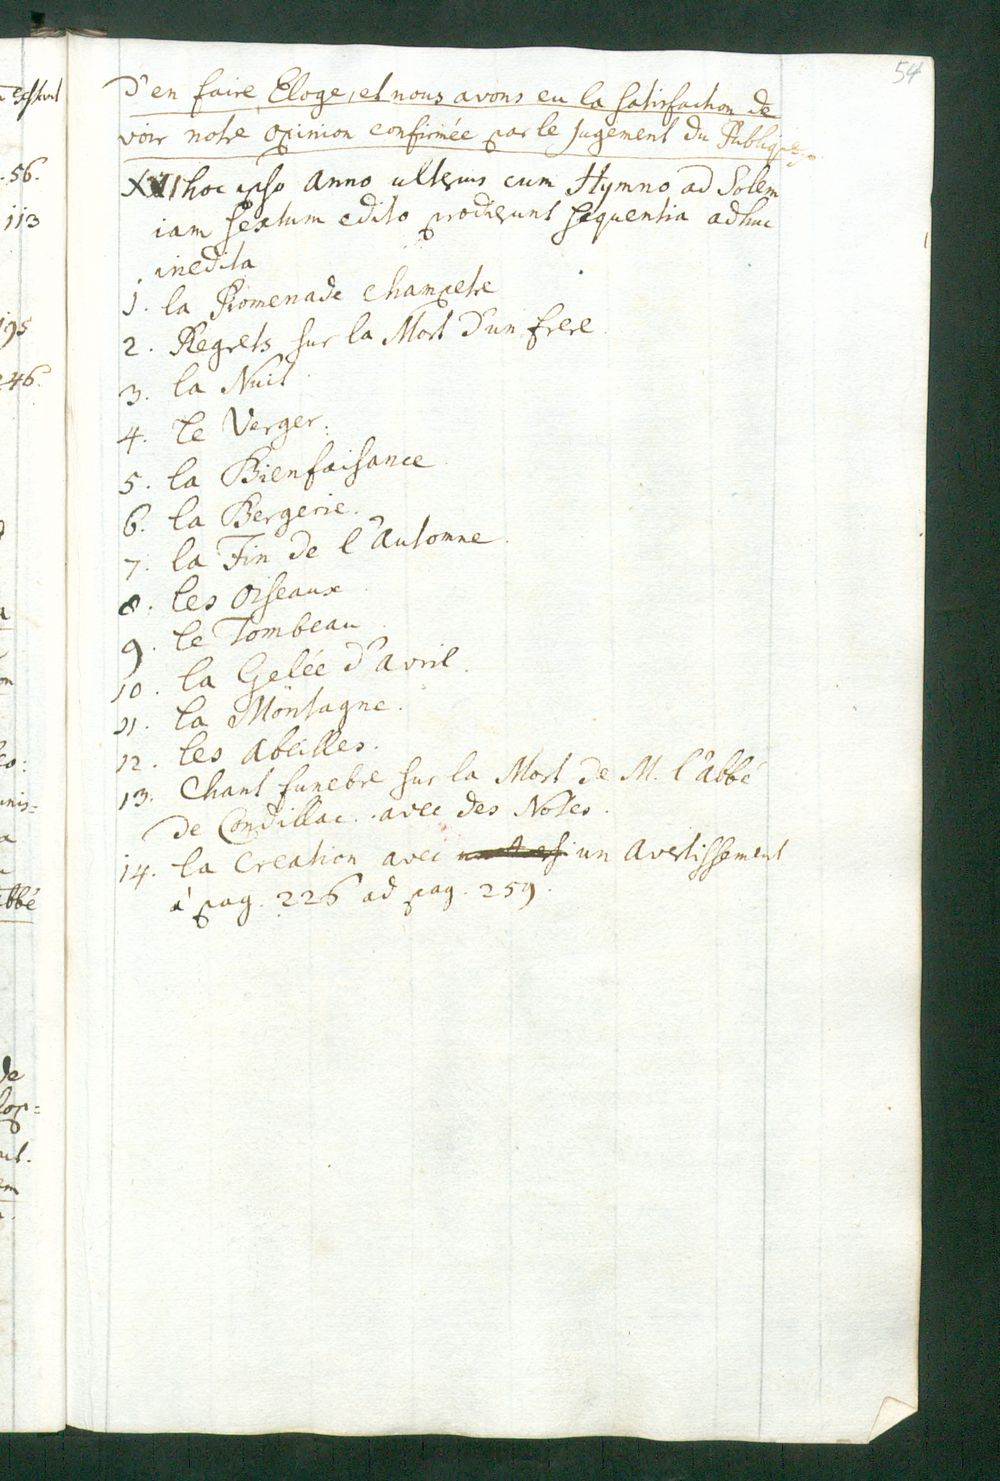 54
D'en faire Eloge, et nous avons eu la satisfaction de
voir notre opinion confirmée par le Jugement du Publique
XVI hoc ipso Anno ulterius cum Hymno ad Solem
iam sextum edito prodierunt sequentia adhuc
inedita
1. la Promenade champetre
2. Regrets sur la Mort d'un frere
3. la Nuit
4. le Verger.
5. la Bienfaisance
6. la Bergerie.
7. la Fin de l'Automne.
8. les Oiseaux
9. le Tombeau
10. la Gelée d'Avril.
11. la Montagne.
12. les Abeilles.
13. Chant funebre sur la Mort de M. l'Abbé
de Condillac. avec des Notes.
14. la Creation avec un Avertissement
à pag. 226 ad pag. 259.
56.
113
195
246.